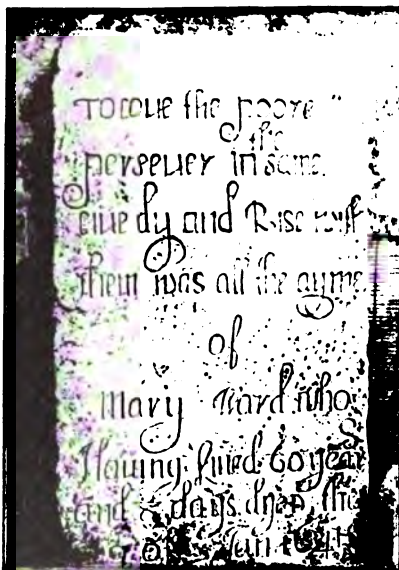 To loue the poore
the
perseuer in same
liue dy and Rise with
them was all the ayme
of
Mary Ward who
Hauing liued 60 year
and days dyed the
of Jan